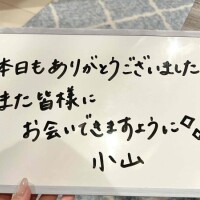 本日もありがとうございました
また皆様に
お会いできますように
小山